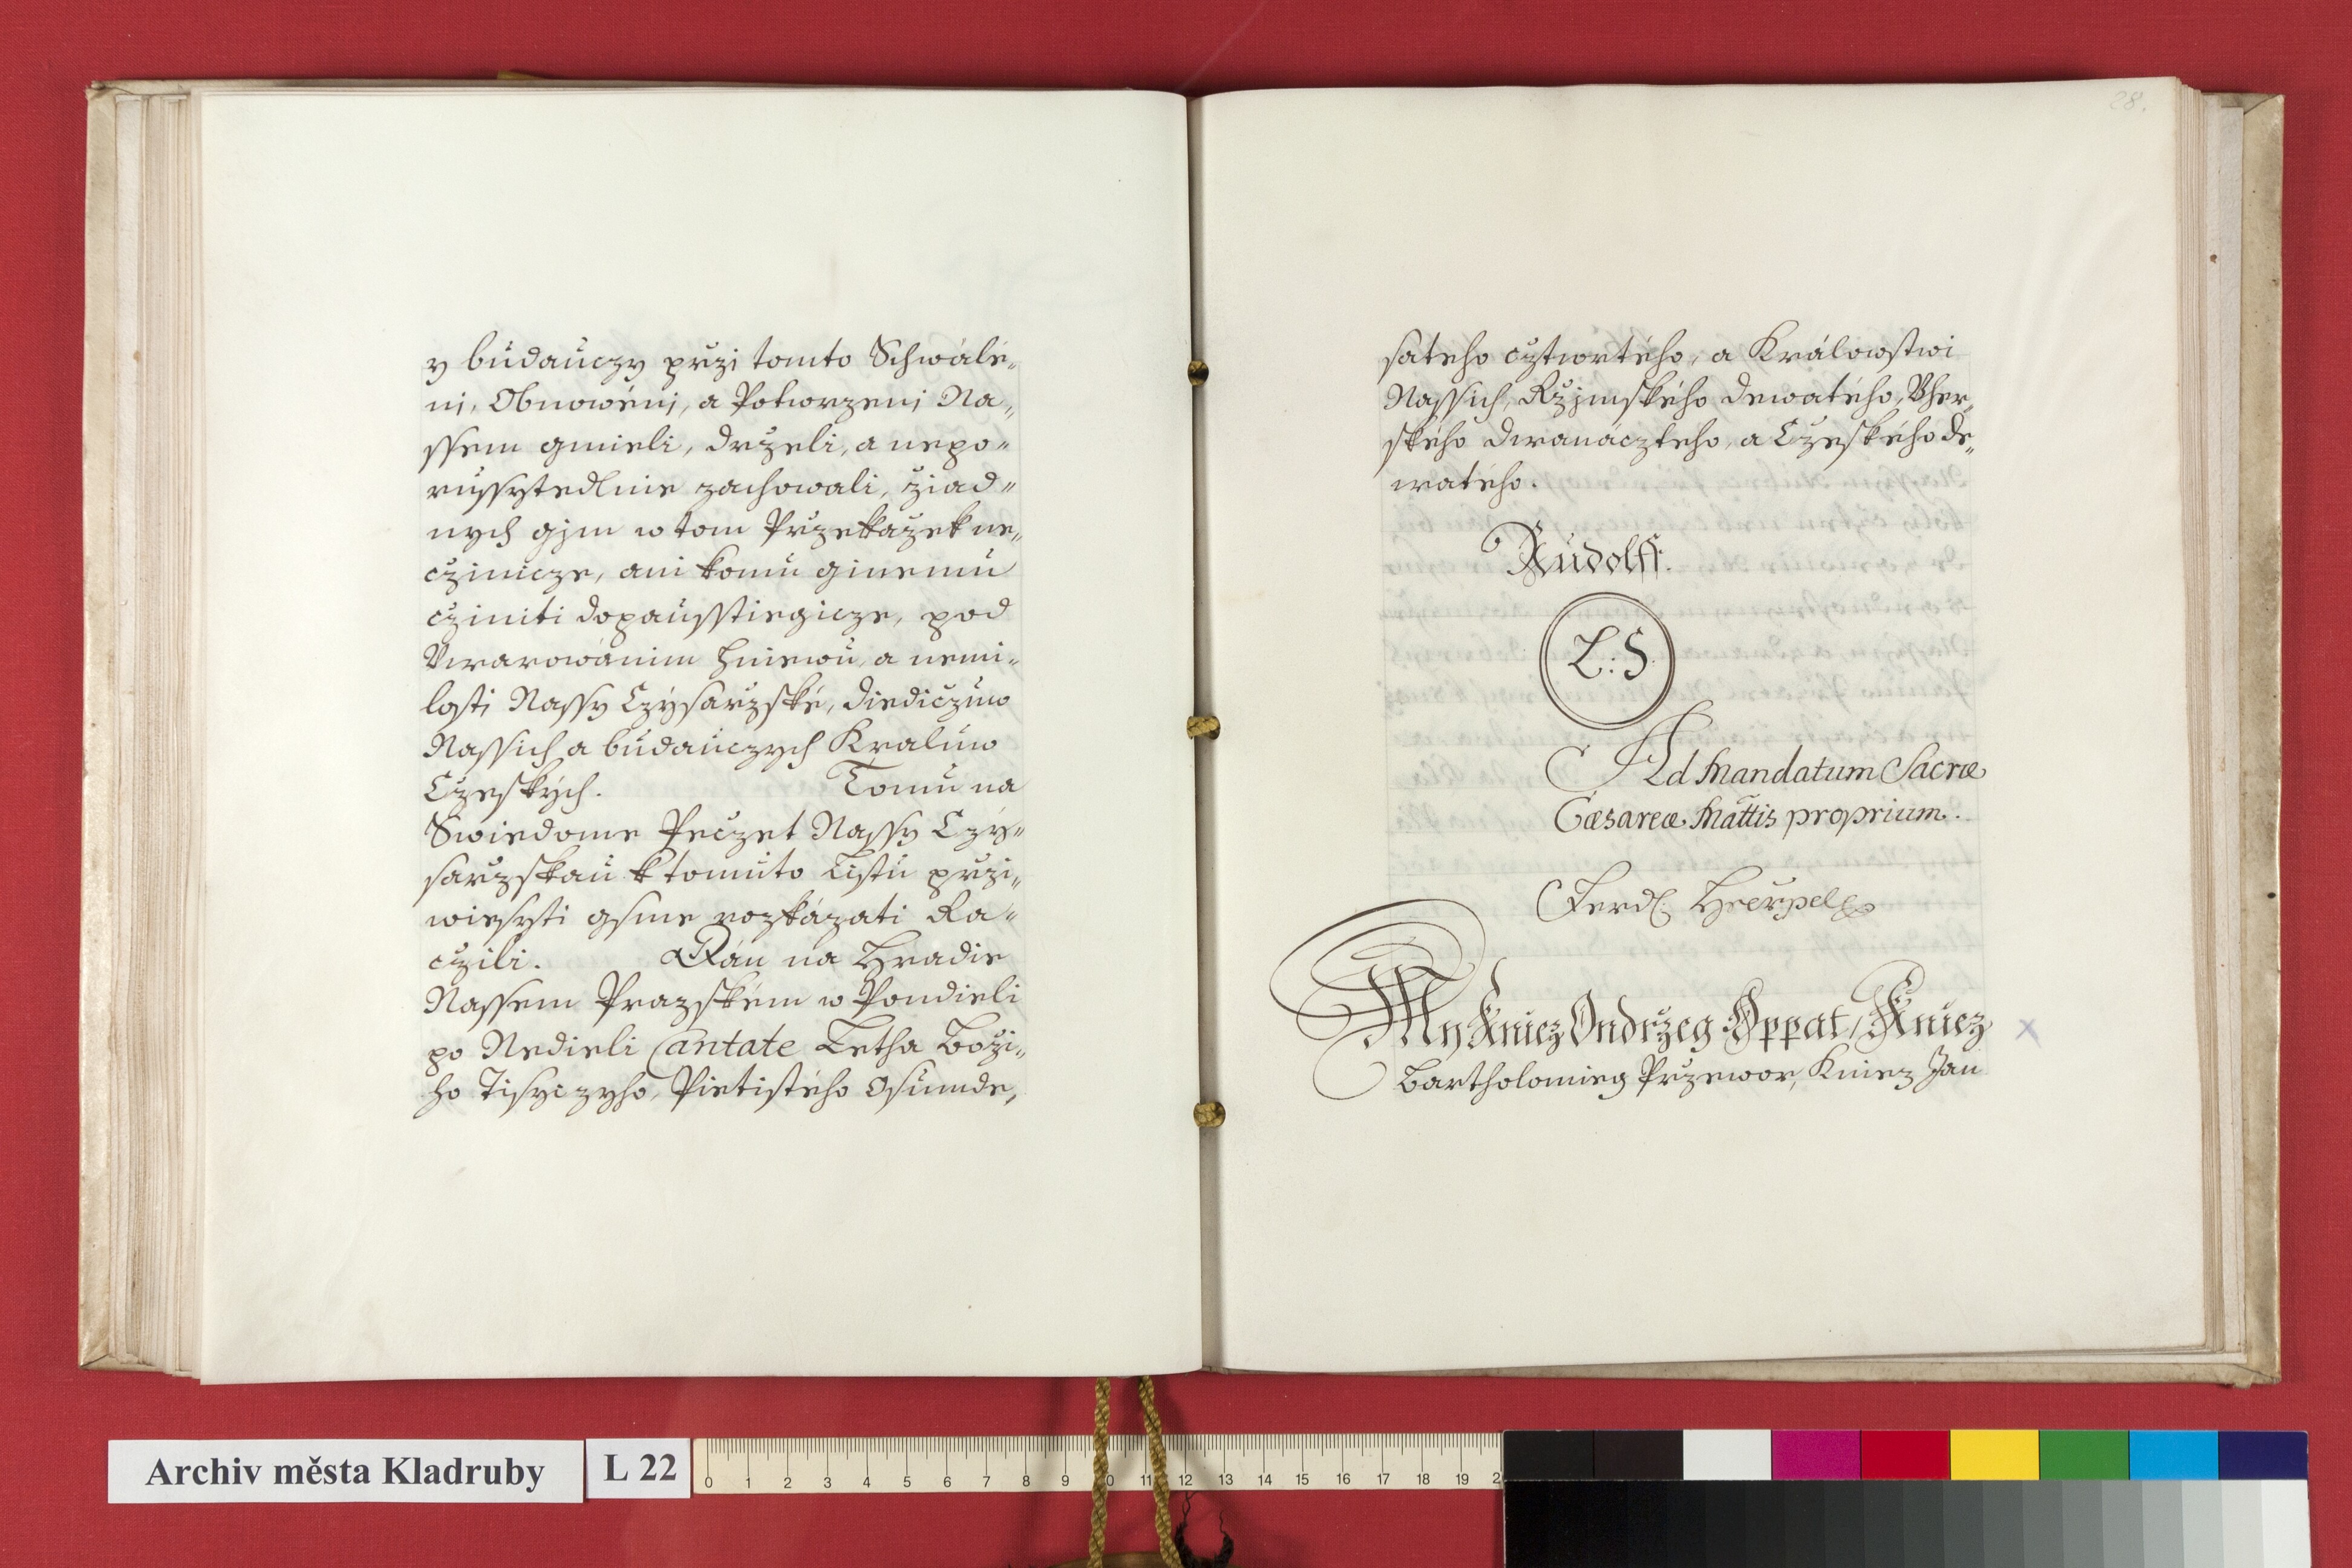 y budauczy przi tomto Schwálé„
ni, Obnowéni, a Potworzeni Na„
ssem gmieli, drželi, a nepo„
russytedlnie zachowali, žiad„
nych gjm w tom Pržekažek ne„
cžinicze, ani komu ginemu
cžiniti dopausstiegicze, pod
Uwarowánim hniewu, a nemi„
losti Nassy Czysaržské, diedicžuw
Nassich a budauczych Kraluw
Cžeských. Tomu na
Swiedome Pecžet Nassy Czy„
saržskau k tomuto Listu prži„
wiesyti gsme rozkázati Ra„
cžili. Dán na Hradie
Nassem Prazském w Pondieli
po Nedieli Cantate Letha Boži„
ho Tisyczyho, Pietistého Osumde„
28.
satého cžtwrtého, a Králowstwi
Nassich, Ržjmského dewatého, Uher„
ského dwanáczteho, a Cžeského de„
watého.
Rudolff.
L: S.
Ad Mandatum Sacræ
Cæsareæ Mattis proprium.
Ferd:
My Kniez Ondržeg Oppat, Kniez
Bartholomieg Pržewor, Kniez Jan
x
Archiv města Kladruby
L 22
0 1 2 3 4 5 6 7 8 9 10 11 12 13 14 15 16 17 18 19 2